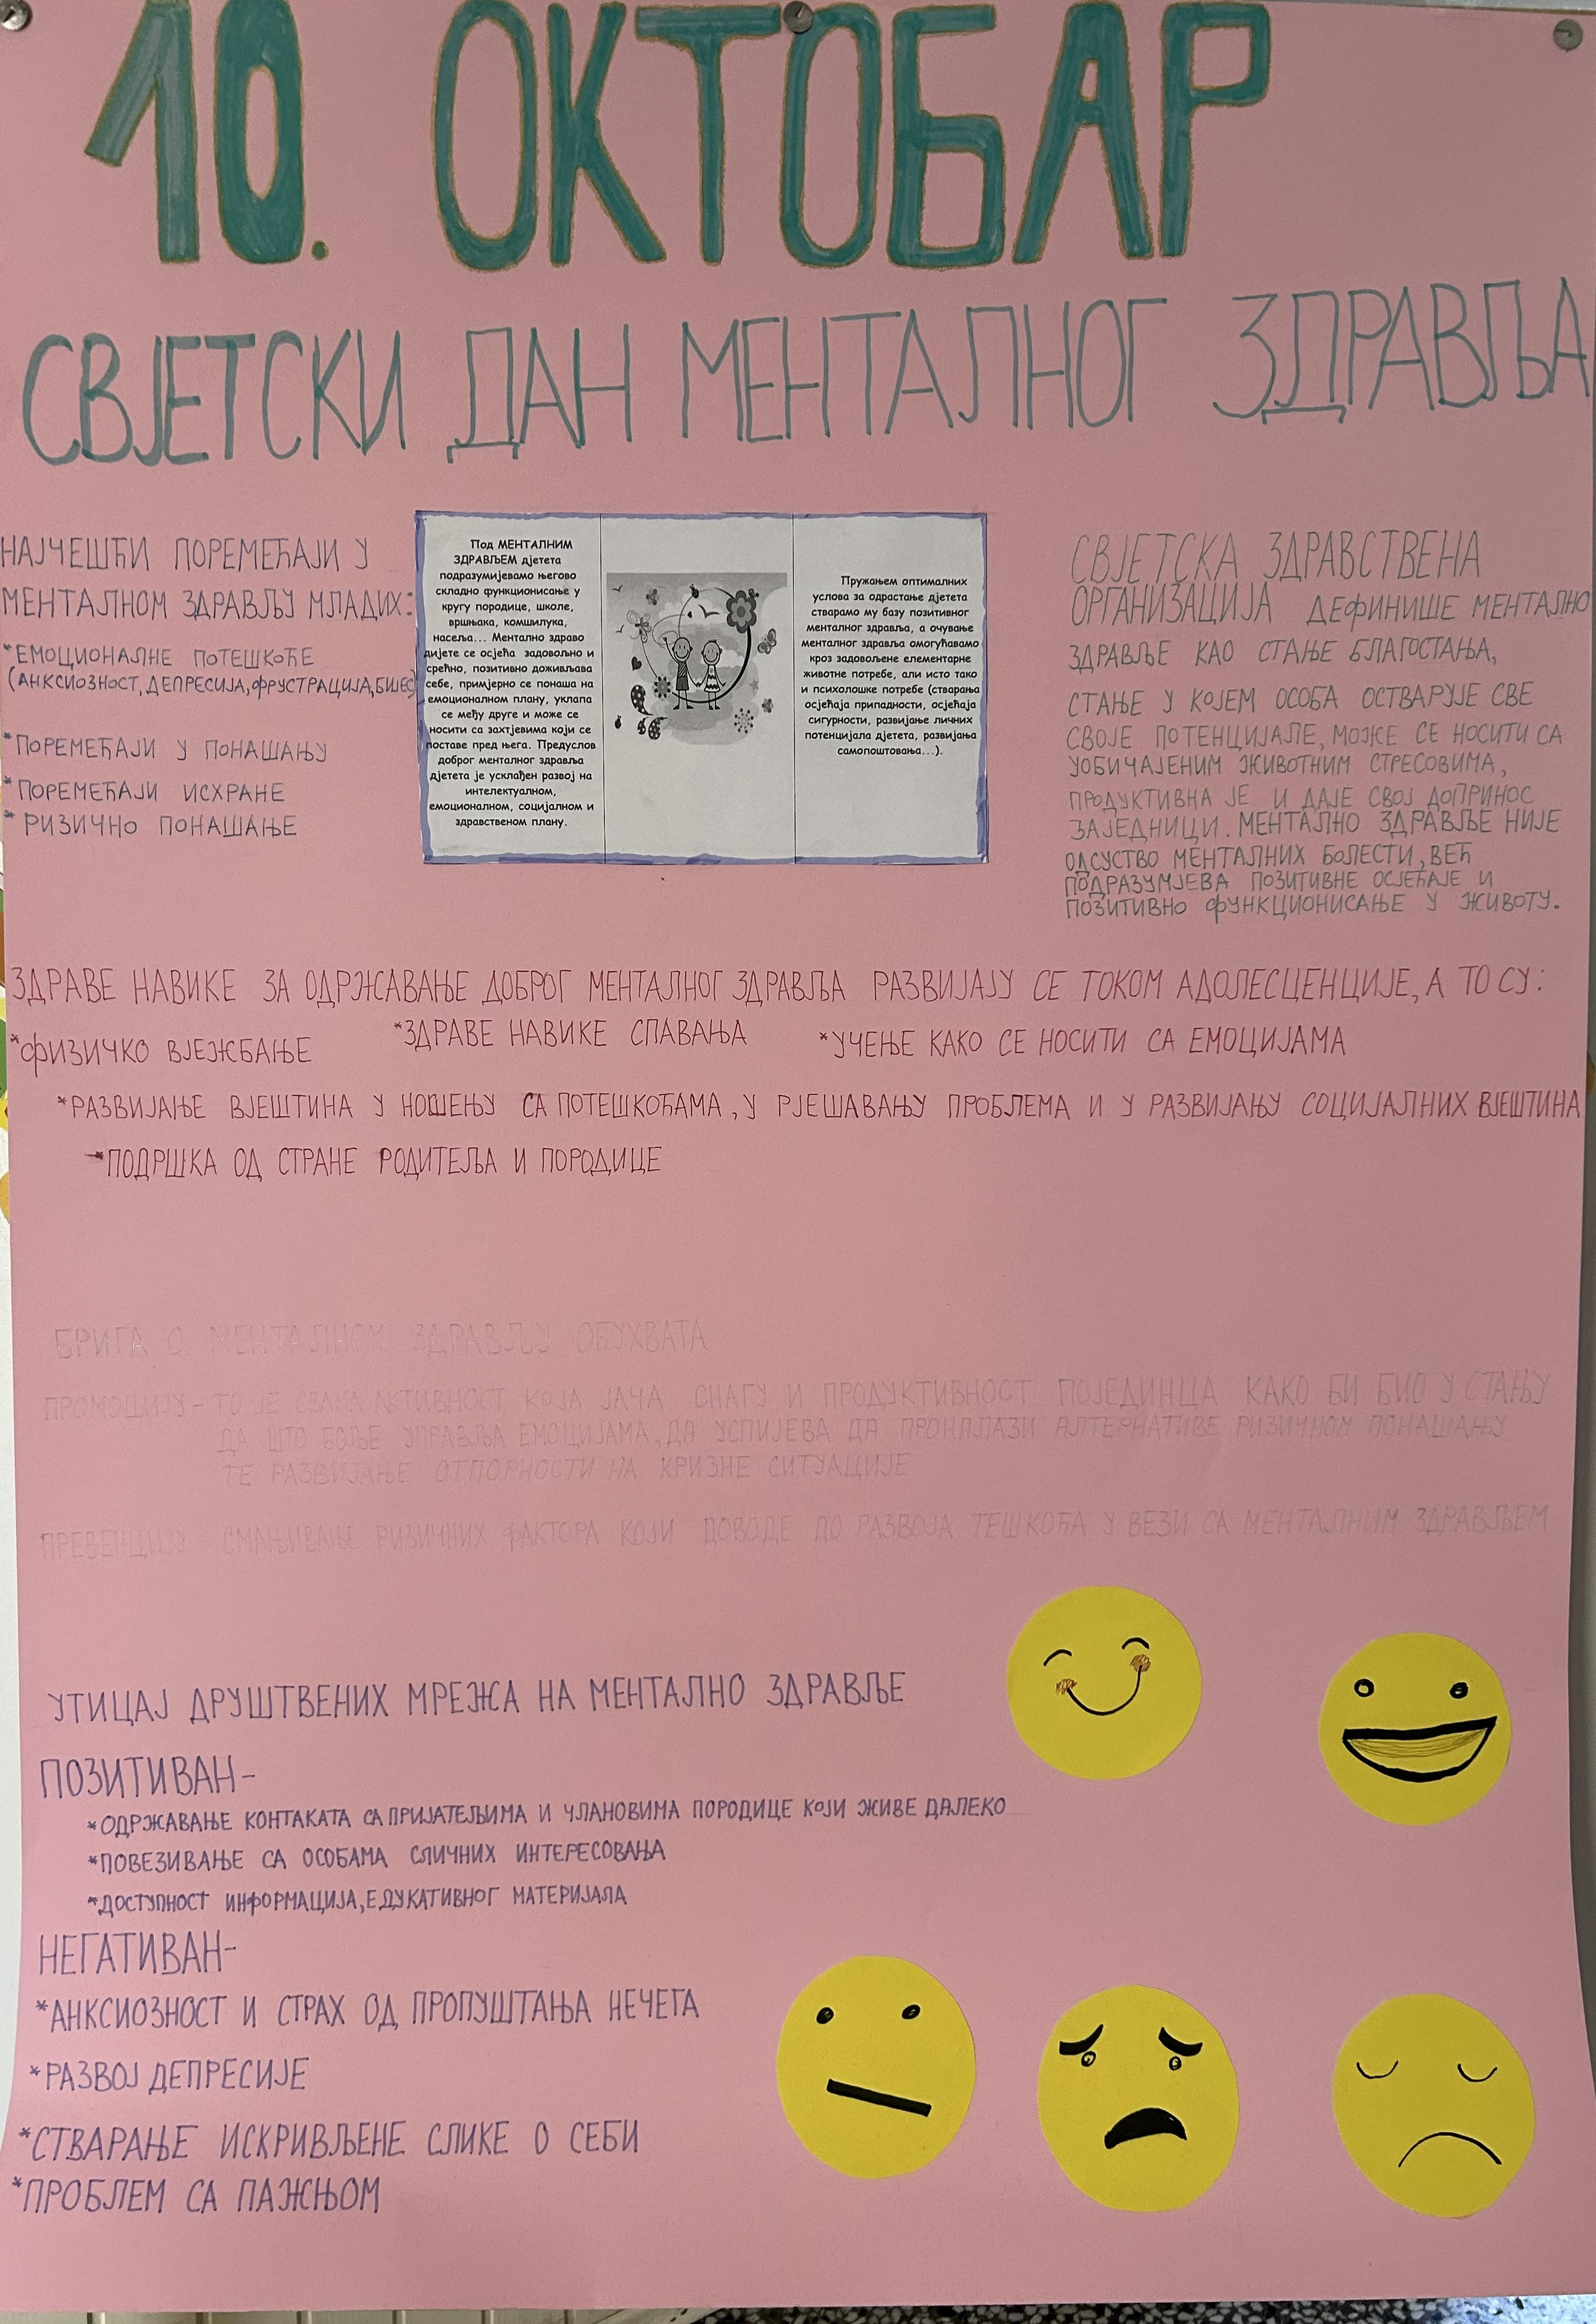 10. ОКТОБАР
СВЈЕТСКИ ДАН МЕНТАЛНОГ ЗДРАВЉА
НАЈЧЕШЋИ ПОРЕМЕЋАЈИ У
МЕНТАЛНОМ ЗДРАВЉУ МЛАДИХ:
*ЕМОЦИОНАЛНЕ ПОТЕШКОЋЕ
(АНКСИОЗНОСТ, ДЕПРЕСИЈА, ФРУСТРАЦИЈА, БИЈЕС)
*ПОРЕМЕЋАЈИ У ПОНАШАЊУ
*ПОРЕМЕЋАЈИ ИСХРАНЕ
*РИЗИЧНО ПОНАШАЊЕ
Под МЕНТАЛНИМ
ЗДРАВЉЕМ дјетета
подразумијевамо његово
складно функционисање у
кругу породице, школе,
вршњака, комшилука,
насеља... Ментално здраво
дијете се осјећа задовољно и
срећно, позитивно доживљава
себе, примјерно се понаша на
емоционалном плану, уклапа
се међу друге и може се
носити са захтјевима који се
поставе пред њега. Предуслов
доброг менталног здравља
дјетета је усклађен развој на
интелектуалном,
емоционалном, социјалном и
здравственом плану.
Пружањем оптималних
услова за одрастање дјетета
стварамо му базу позитивног
менталног здравља, а очување
менталног здравља омогућавамо
кроз задовољене елементарне
животне потребе, али исто тако
и психолошке потребе (стварања
осјећаја припадности, осјећаја
сигурности, развијање личних
потенцијала дјетета, развијања
самопоштовања...).
СВЈЕТСКА ЗДРАВСТВЕНА
ОРГАНИЗАЦИЈА ДЕФИНИШЕ МЕНТАЛНО
ЗДРАВЉЕ КАО СТАЊЕ БЛАГОСТАЊА,
СТАЊЕ У КОЈЕМ ОСОБА ОСТВАРУЈЕ СВЕ
СВОЈЕ ПОТЕНЦИЈАЛЕ, МОЖЕ СЕ НОСИТИ СА
УОБИЧАЈЕНИМ ЖИВОТНИМ СТРЕСОВИМА,
ПРОДУКТИВНА ЈЕ И ДАЈЕ СВОЈ ДОПРИНОС
ЗАЈЕДНИЦИ. МЕНТАЛНО ЗДРАВЉЕ НИЈЕ
ОДСУСТВО МЕНТАЛНИХ БОЛЕСТИ, ВЕЋ
ПОДРАЗУМЈЕВА ПОЗИТИВНЕ ОСЈЕЋАЈЕ И
ПОЗИТИВНО ФУНКЦИОНИСАЊЕ У ЖИВОТУ.
ЗДРАВЕ НАВИКЕ ЗА ОДРЖАВАЊЕ ДОБРОГ МЕНТАЛНОГ ЗДРАВЉА РАЗВИЈАЈУ СЕ ТОКОМ АДОЛЕСЦЕНЦИЈЕ, А ТО СУ:
*ФИЗИЧКО ВЈЕЖБАЊЕ *ЗДРАВЕ НАВИКЕ СПАВАЊА *УЧЕЊЕ КАКО СЕ НОСИТИ СА ЕМОЦИЈАМА
*РАЗВИЈАЊЕ ВЈЕШТИНА У НОШЕЊУ СА ПОТЕШКОЋАМА, У РЈЕШАВАЊУ ПРОБЛЕМА И У РАЗВИЈАЊУ СОЦИЈАЛНИХ ВЈЕШТИНА
*ПОДРШКА ОД СТРАНЕ РОДИТЕЉА И ПОРОДИЦЕ
БРИГА О МЕНТАЛНОМ ЗДРАВЉУ ОБУХВАТА
ПРОМОЦИЈУ - ТО ЈЕ СВАКА АКТИВНОСТ КОЈА ЈАЧА СНАГУ И ПРОДУКТИВНОСТ ПОЈЕДИНЦА КАКО БИ БИО У СТАЊУ
ДА ШТО БОЉЕ УПРАВЉА ЕМОЦИЈАМА, ДА УСПИЈЕВА ДА ПРОНАЛАЗИ АЛТЕРНАТИВЕ РИЗИЧНОМ ПОНАШАЊУ
ТЕ РАЗВИЈАЊЕ ОТПОРНОСТИ НА КРИЗНЕ СИТУАЦИЈЕ
ПРЕВЕНЦИЈУ - СМАЊИВАЊЕ РИЗИЧНИХ ФАКТОРА КОЈИ ДОВОДЕ ДО РАЗВОЈА ТЕШКОЋА У ВЕЗИ СА МЕНТАЛНИМ ЗДРАВЉЕМ
УТИЦАЈ ДРУШТВЕНИХ МРЕЖА НА МЕНТАЛНО ЗДРАВЉЕ
ПОЗИТИВАН-
*ОДРЖАВАЊЕ КОНТАКАТА СА ПРИЈАТЕЉИМА И ЧЛАНОВИМА ПОРОДИЦЕ КОЈИ ЖИВЕ ДАЛЕКО
*ПОВЕЗИВАЊЕ СА ОСОБАМА СЛИЧНИХ ИНТЕРЕСОВАЊА
*ДОСТУПНОСТ ИНФОРМАЦИЈА, ЕДУКАТИВНОГ МАТЕРИЈАЛА
НЕГАТИВАН-
*АНКСИОЗНОСТ И СТРАХ ОД ПРОПУШТАЊА НЕЧЕГА
*РАЗВОЈ ДЕПРЕСИЈЕ
*СТВАРАЊЕ ИСКРИВЉЕНЕ СЛИКЕ О СЕБИ
*ПРОБЛЕМ СА ПАЖЊОМ